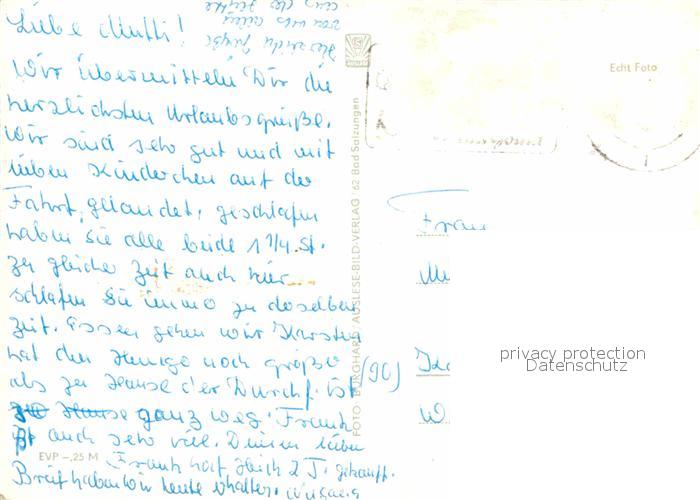 Liebe Mutti!
Wir übermitteln Dir die
herzlichsten Urlaubsgrüße.
Wir sind sehr gut und mit
lieben Kinderchen auf der
Fahrt, gelandet, geschlafen
haben sie alle beide 1 1/4 St.
zu gleicher Zeit auch hier
schlafen sie immer zu derselben
Zeit. Essen gehen wir Karsten
hat den Hunger noch größer
als zu Hause der Durchf. ist
ganz weg. Frank
ißt auch sehr viel. Deinen lieben
Frank hat sich 2 T. gekauft.
Brief haben wir heute erhalten.
(90)
EVP –,25 M
FOTO BURGHARD/AUSLESE-BILD-VERLAG 62 Bad Salzungen
Echt Foto
Frau
privacy protection
Datenschutz